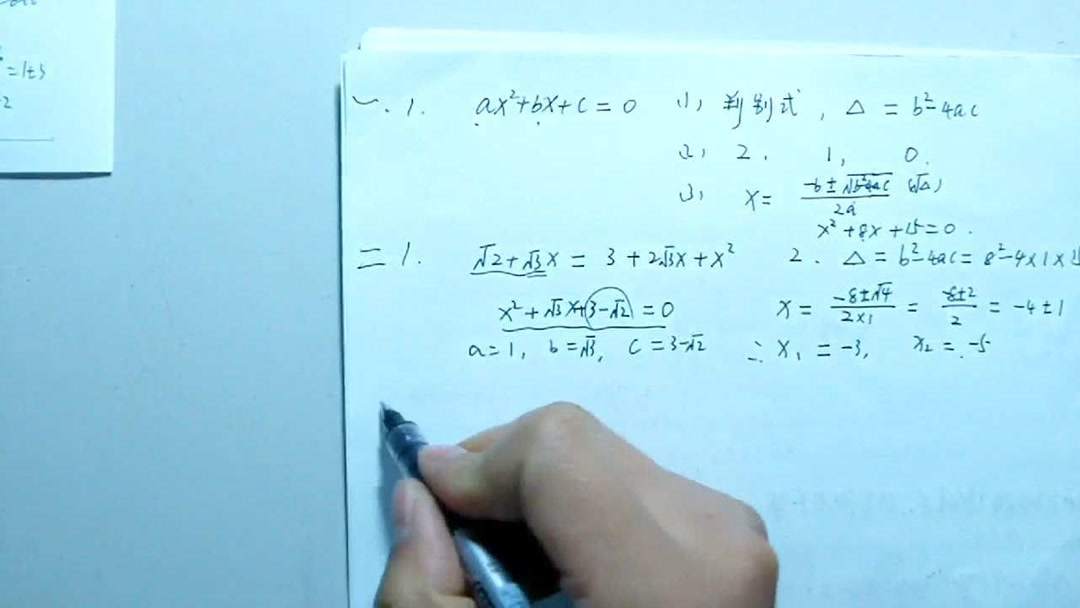 =1±3
一. 1. ax²+bx+c=0 (1) 判别式, △=b²-4ac
(2) 2. 1, 0.
(3) x=\frac{-b±√b²-4ac}{2a} (√△)
x²+8x+15=0.
二 1. √2+√3x=3+2√3x+x²
x²+√3x+3-√2=0
a=1, b=√3, c=3-√2
2. △=b²-4ac=8²-4×1×
x=\frac{-8±√4}{2×1}=\frac{-8±2}{2}=-4±1
∴x₁=-3, x₂=-5